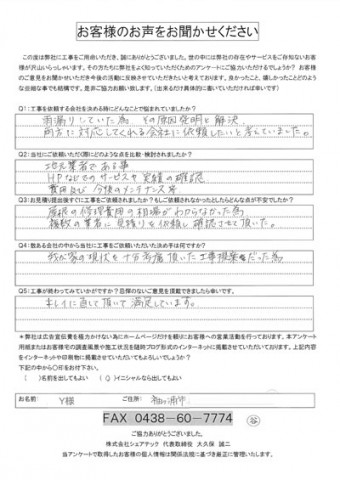 お客様のお声をお聞かせください
この度は弊社に工事をご用命いただき、誠にありがとうございました。世の中には弊社の存在やサービスをご存知ないお客
様が沢山いらっしゃいます。その方たちに弊社をよく知っていただくためのアンケートにご協力いただけるでしょうか？ お客様
のご意見をお聞かせいただき今後の活動に反映させていただきたいと考えております。良かったこと、嬉しかったことどのよう
な些細な事でも結構です。是非ご協力お願い致します。(出来るだけ具体的に書いていただければ幸いです)
Q1：工事を依頼する会社を決める時にどんなことで悩まれていましたか？
雨漏りしていた為 その原因究明と解決
両方に対応してくれる会社に依頼したいと考えていました。
Q2：当社にご依頼いただく際にどのような点を比較・検討されましたか？
地元業者である事
HPなどでのサービスや実績の確認
費用及び 今後のメンテナンス等
Q3：お見積り提出後すぐに工事をご依頼されましたか？もしご依頼されなかったとしたらどんな点が不安でしたか？
屋根の修理費用の相場がわからなかった為
複数の業者に見積りを依頼し確認させて頂いた。
Q4：数ある会社の中から当社に工事をご依頼いただいた決め手は何ですか？
我が家の現状を十分考慮頂いた工事提案だった為
Q5：工事が終わってみていかがですか？忌憚のないご意見を頂戴できましたら幸いです。
キレイに直して頂いて満足しています。
＊弊社は広告宣伝費を極力かけない為にホームページだけを頼りにお客様への営業活動を行っております。本アンケート
用紙またはお客様宅の調査風景や施工状況を随時ブログ形式のインターネットに掲載させていただいております。上記内容
をインターネットや印刷物に掲載させていただいてもよろしいでしょうか？
下記の中から〇印をお付け下さい。
（　）名前を出してもよい （〇）イニシャルなら出してもよい
お名前： Y様 ご住所： 袖ケ浦市
FAX 0438-60-7774
ご協力ありがとうございました。
株式会社シェアテック 代表取締役 大久保 誠二
当アンケートで取得したお客様の個人情報は関係法規に基づき厳正に管理いたします。